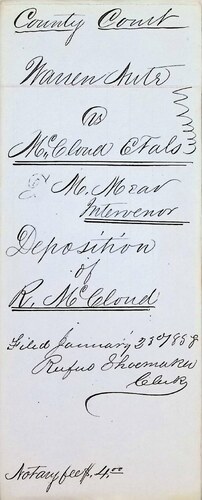 County Court
Warren Mite
vs
McCloud Et als
M. Mead
Intervenor
Deposition
of
R. McCloud
Filed January 23d 1858
Rufus Shoemaker
Clerk
Notary fee $4.00